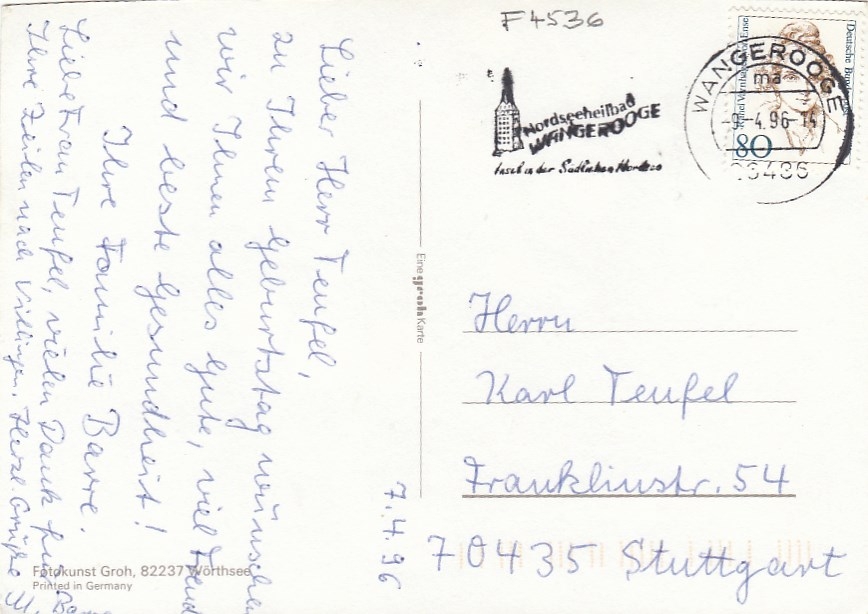 7.4.96
Lieber Herr Teufel,
zu Ihrem Geburtstag wünschen
wir Ihnen alles Gute, viel Freude
und beste Gesundheit!
Ihre Familie Barre.
Liebe Frau Teufel, vielen Dank für
Ihre Zeilen nach Villingen. Herzl. Grüße
Fotokunst Groh, 82237 Wörthsee
Printed in Germany
Eine groh Karte
F4536
Nordseeheilbad
WANGEROOGE
Insel in der Südlichen Nordsee
WANGEROOGE
ma
-9.-4.96-14
26486
Deutsche Bundespost
Rahel Varnhagen von Ense
80
Herrn
Karl Teufel
Franklinstr. 54
70435 Stuttgart